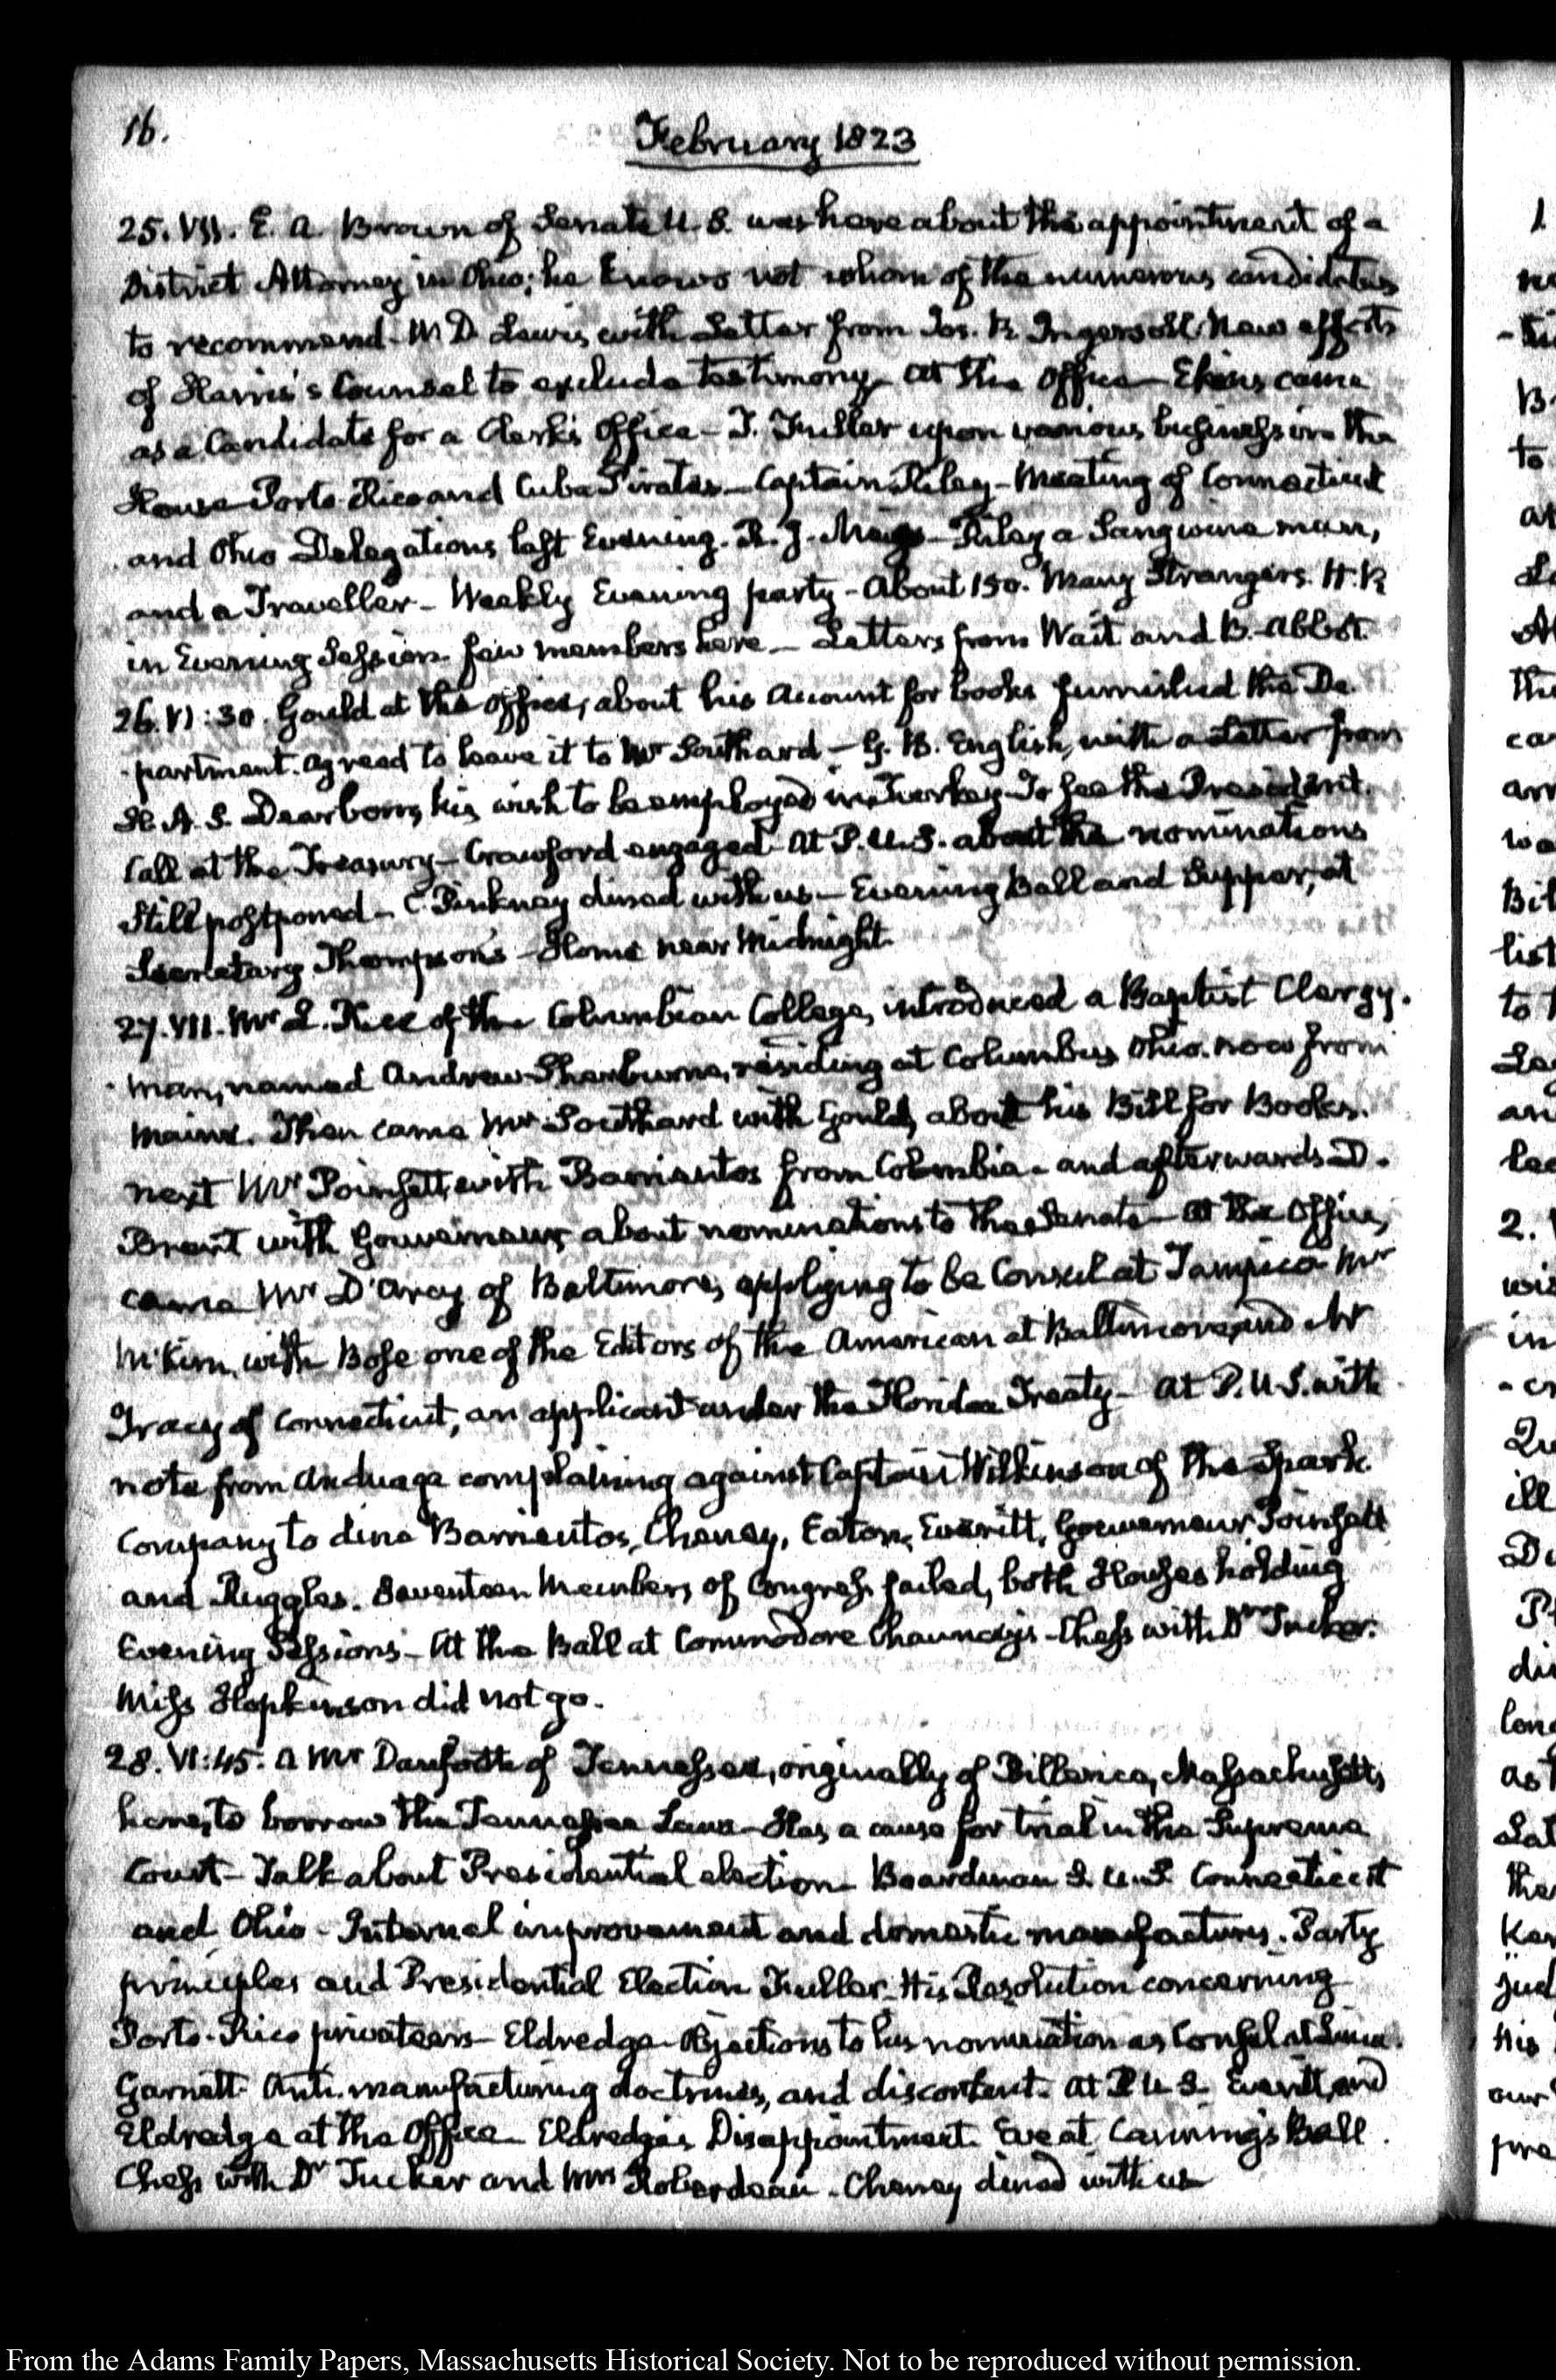 16.
February 1823
25. VII. E. A. Brown of Senate U.S. was here about the appointment of a
District Attorney in Ohio; he knows not whom of the numerous candidates
to recommend. W D Lewis with Letter from Jos. R. Ingersoll. New efforts
of Harris's Counsel to exclude testimony. At the Office — Ekins came
as a Candidate for a Clerk's Office — T. Fuller upon various business in the
House Porto-Rico and Cuba Pirates — Captain Riley — Meeting of Connecticut
and Ohio Delegations last Evening. R. J. Meigs — Riley a Sanguine man,
and a Traveller — Weekly Evening party — About 150. Many Strangers. H.R
in Evening Session. few members here — Letters from Wait and B. Abbot.
26. VI:30. Gould at the office, about his Account for books furnished the De-
-partment. agreed to leave it to Mr Southard — G. B. English, with a Letter from
H. A. S. Dearborn, his wish to be employed in Turkey. To see the President.
Call at the Treasury — Crawford engaged. At P.U.S. about the nominations
Still postponed — C. Pinkney dined with us — Evening Ball and Supper, at
Secretary Thompson's — Home near Midnight.
27. VII. Mr L. Rice of the Columbian College, introduced a Baptist Clergy-
-man, named Andrew Sherburne, residing at Columbus Ohio. now from
Maine. Then came Mr Southard with Gould, about his Bill for Books.
next Mr Poinsett with Barrientos from Colombia — and afterwards D.
Brent with Gouverneur, about nominations to the Senate — At the Office,
came Mr D'Arcy of Baltimore, applying to be Consul at Tampico. Mr
McKim, with Bose one of the Editors of the American at Baltimore, and Mr
Tracy of Connecticut, an applicant under the Florida Treaty — At P.U.S. with
note from Anduaga complaining against Captain Wilkinson of the Spark.
Company to dine Barrientos, Cheney, Eaton, Everitt, Gouverneur, Poinsett
and Ruggles. Seventeen Members of Congress failed, both Houses holding
Evening Sessions — At the Ball at Commodore Chauncey's — Chess with Dr Tucker.
Miss Hopkinson did not go.
28. VI:45. A Mr Danforth of Tennessee, originally of Billerica, Massachusetts,
here, to borrow the Tennessee Laws — Has a cause for trial in the Supreme
Court — Talk about Presidential election — Boardman S. U.S. Connecticut
and Ohio — Internal improvement and domestic manufactures. Party
principles and Presidential Election Fuller. His Resolution concerning
Porto-Rico privateers — Eldredge — Objections to his nomination as Consul at Lima.
Garnett. Anti-manufacturing doctrines, and discontent. At P.U.S. Everitt, and
Eldredge at the Office — Eldredge's Disappointment. Eve at Canning's Ball.
Chess with Dr Tucker and Mrs Roberdeau — Cheney dined with us
From the Adams Family Papers, Massachusetts Historical Society. Not to be reproduced without permission.